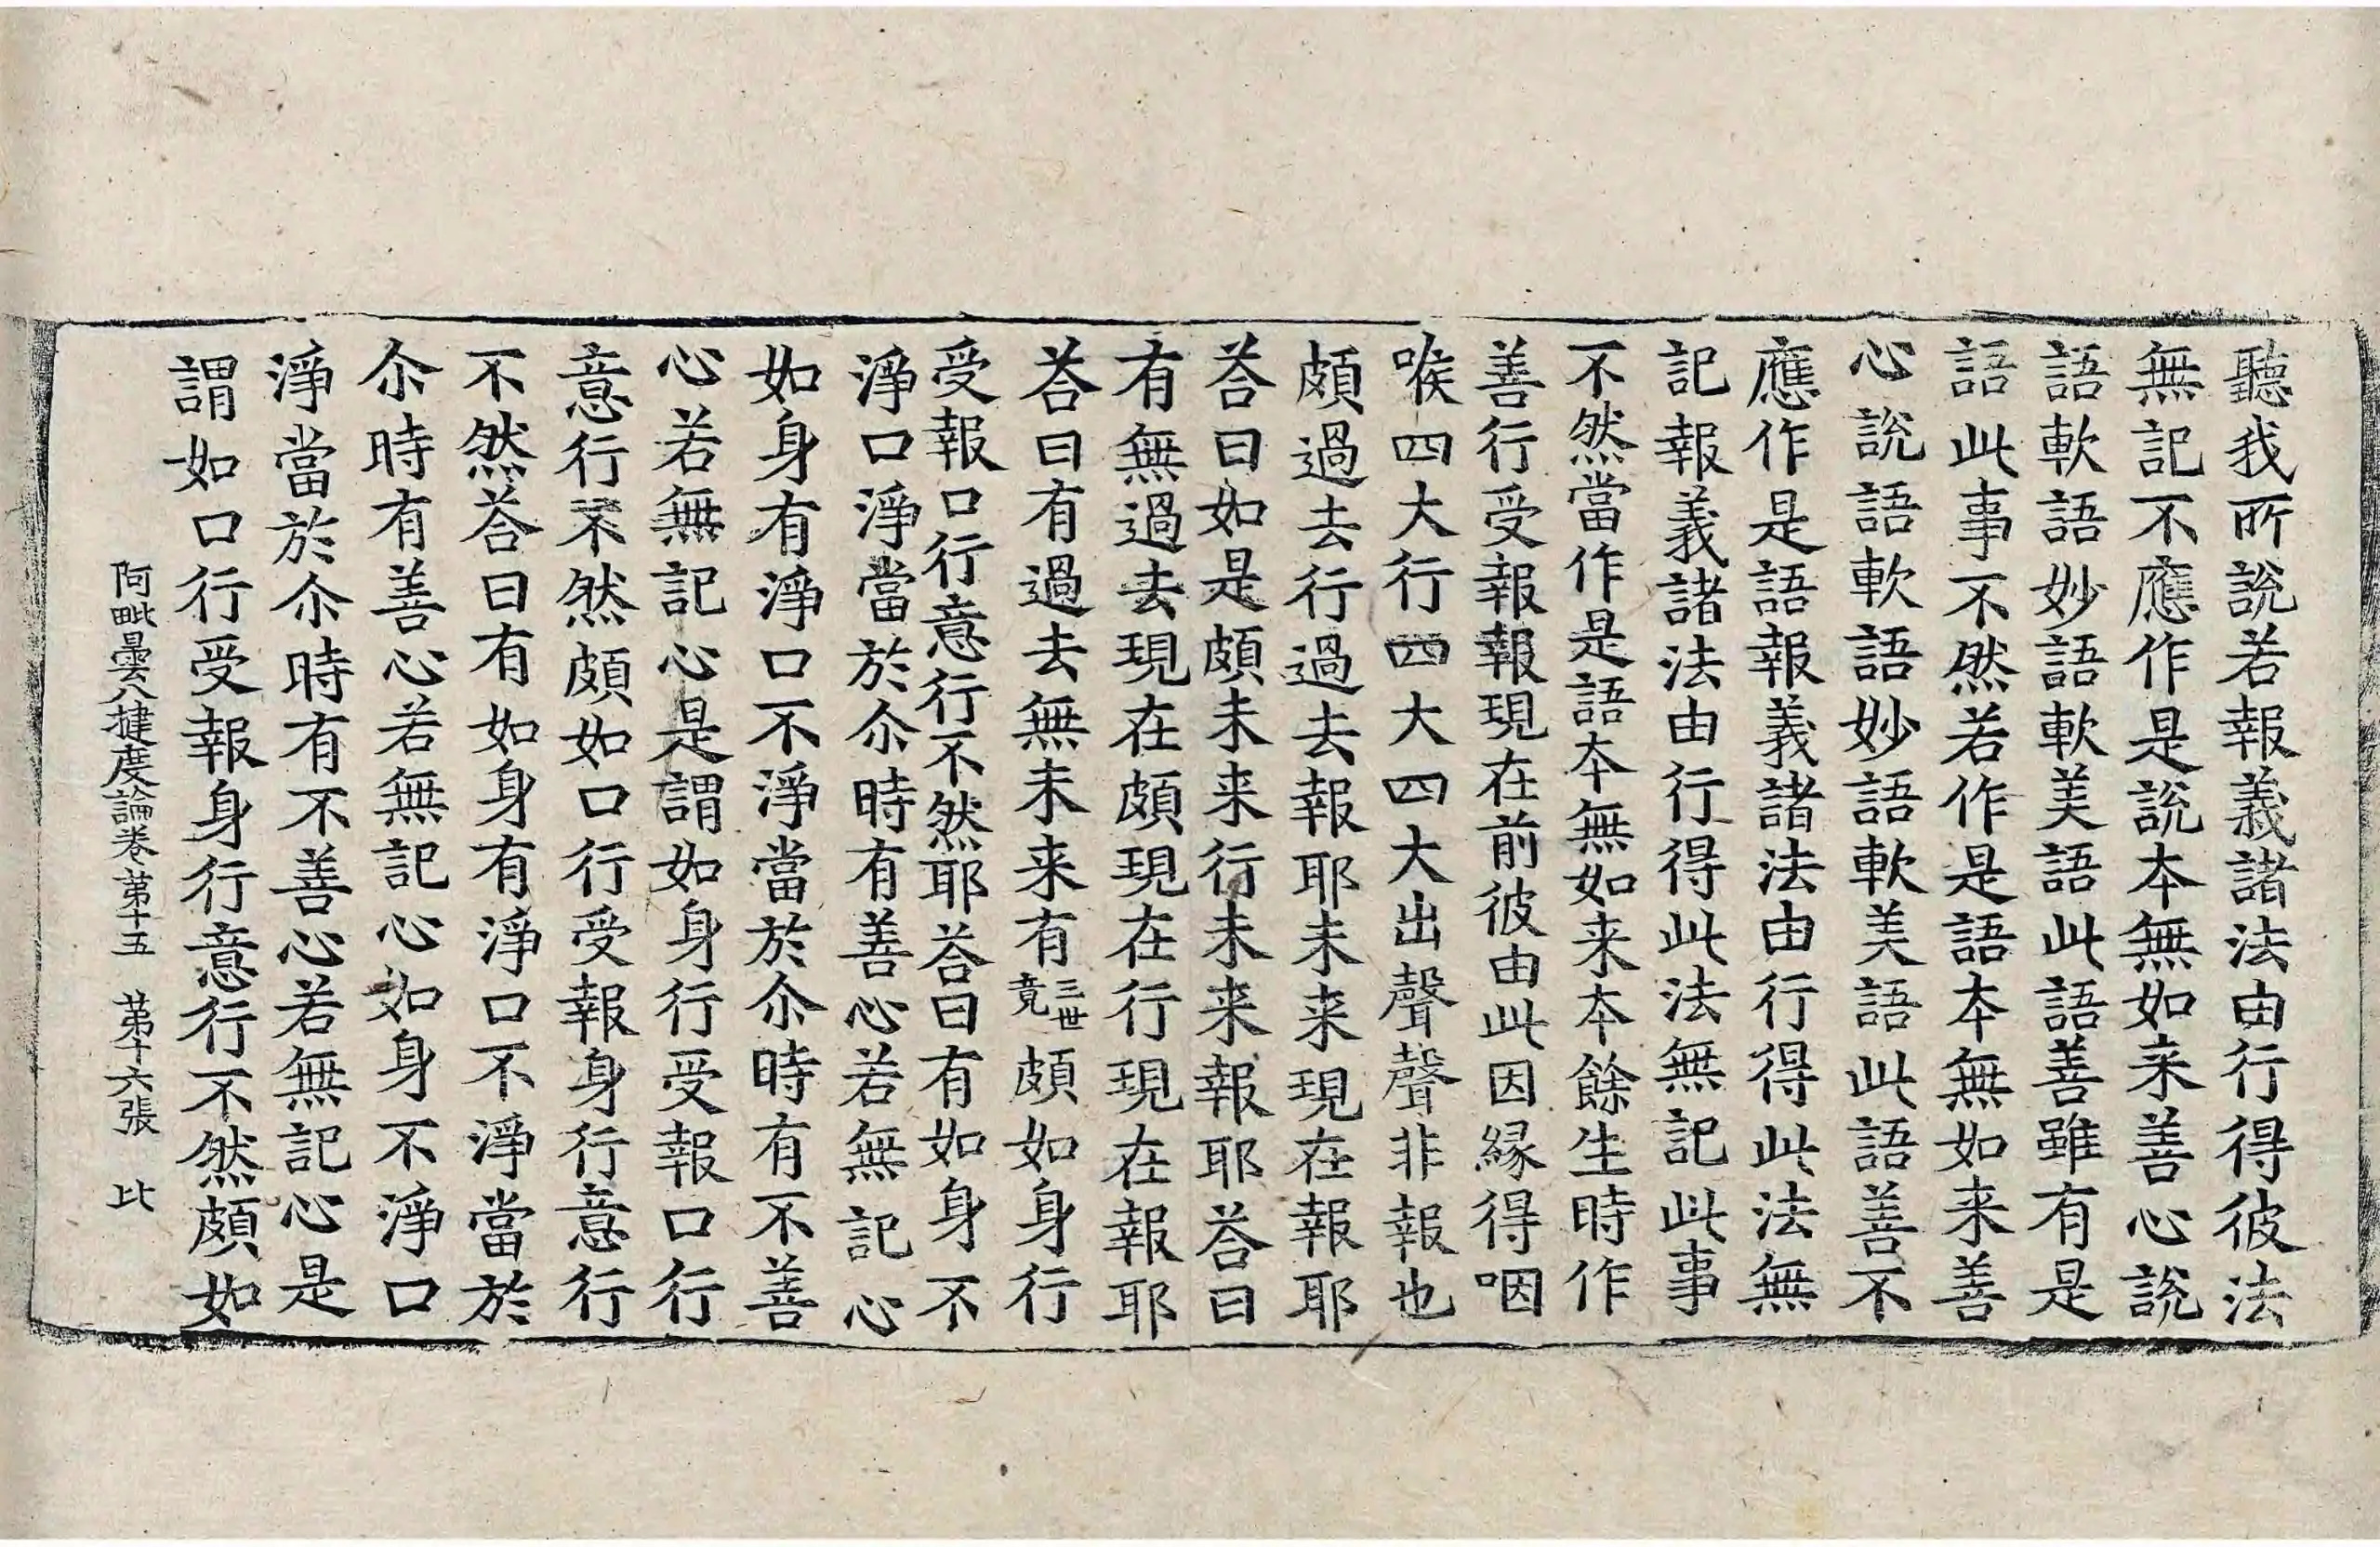 聽我所說若報義諸法由行得彼法
無記不應作是說本無如来善心說
語軟語妙語軟美語此語善雖有是
語此事不然若作是語本無如来善
心說語軟語妙語軟美語此語善不
應作是語報義諸法由行得此法無
記報義諸法由行得此法無記此事
不然當作是語本無如来本餘生時作
善行受報報現在前彼由此因緣得咽
喉四大行四大四大出聲聲非報也
頗過去行過去報耶未来現在報耶
荅曰如是頗未来行未来報耶荅曰
有無過去現在頗現在行現在報耶
荅曰有過去無未来有三世竟頗如身行
受報口行意行不然耶荅曰有如身不
淨口淨當於尒時有善心若無記心
如身有淨口不淨當於尒時有不善
心若無記心是謂如身行受報口行
意行不然頗如口行受報身行意行
不然荅曰有如身有淨口不淨當於
尒時有善心若無記心如身不淨口
淨當於尒時有不善心若無記心是
謂如口行受報身行意行不然頗如
阿毗曇八揵度論卷第十五 第十六張 比